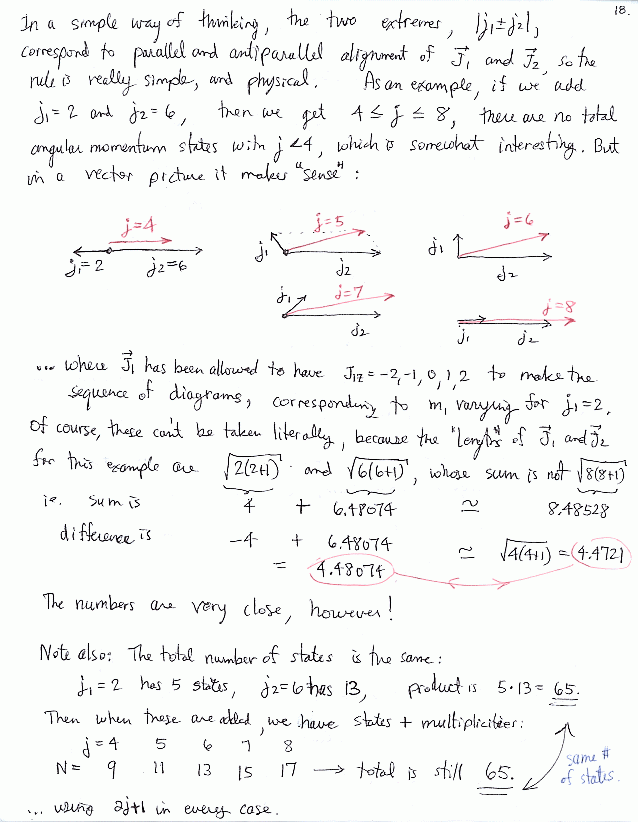 18.
In a simple way of thinking, the two extremes, |j₁±j₂|,
correspond to parallel and antiparallel alignment of J⃗₁ and J⃗₂, so the
rule is really simple, and physical. As an example, if we add
j₁=2 and j₂=6, then we get 4 ≤ j ≤ 8, there are no total
angular momentum states with j<4, which is somewhat interesting. But
in a vector picture it makes "sense":
j=4
j₁=2 j₂=6
j=5
j₁
j₂
j=6
j₁
j₂
j=7
j₁
j₂
j=8
j₁ j₂
... where J⃗₁ has been allowed to have J₁z = -2,-1,0,1,2 to make the
sequence of diagrams, corresponding to m₁ varying for j₁=2.
Of course, these can't be taken literally, because the "lengths" of J⃗₁ and J⃗₂
for this example are √2(2+1) and √6(6+1), whose sum is not √8(8+1)
ie. sum is 4 + 6.48074 ≃ 8.48528
difference is -4 + 6.48074 ≃ √4(4+1) = 4.4721
= 4.48074
The numbers are very close, however!
Note also: The total number of states is the same:
j₁=2 has 5 states, j₂=6 has 13, product is 5·13 = 65.
Then when these are added, we have states + multiplicities:
j=4 5 6 7 8
N= 9 11 13 15 17 → total is still 65.
same #
of states.
... using 2j+1 in every case.